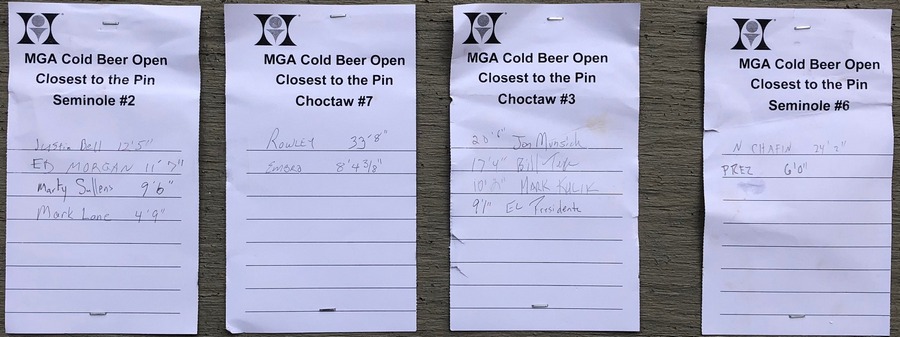 MGA Cold Beer Open
Closest to the Pin
Seminole #2
Justin Bell 12'5"
ED MORGAN 11'7"
Marty Sullens 9'6"
Mark Lane 4'9"
MGA Cold Beer Open
Closest to the Pin
Choctaw #7
ROWLEY 33'8"
8'4 3/8"
MGA Cold Beer Open
Closest to the Pin
Choctaw #3
20'6" Jon
17'4" Bill
MARK KULIK
9'1" EL Presidente
MGA Cold Beer Open
Closest to the Pin
Seminole #6
N CHAFIN 24'2"
PREZ 6'0"